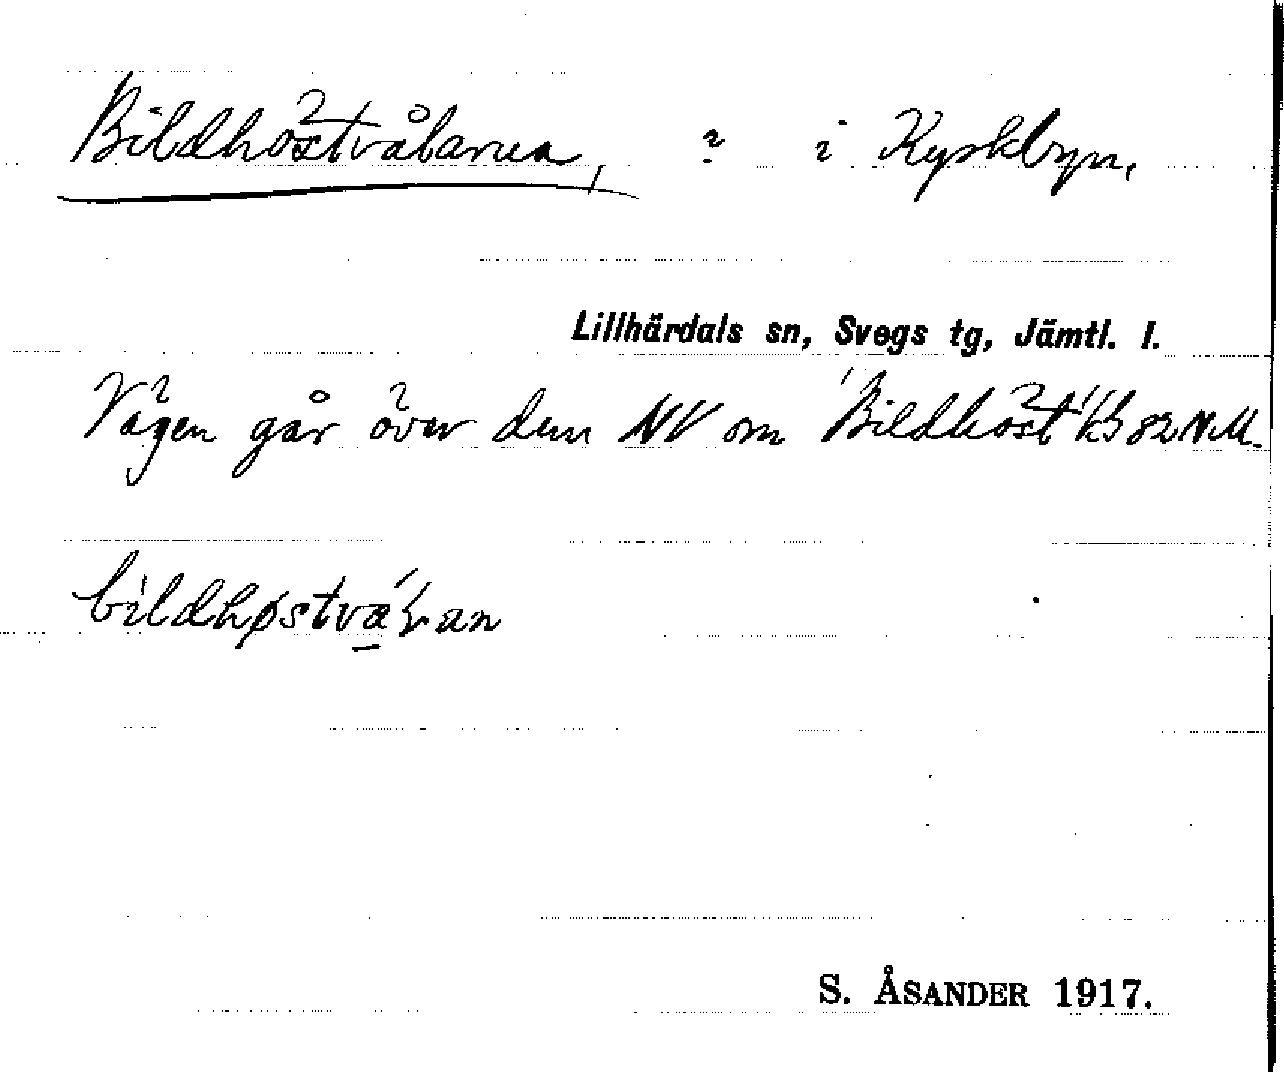 Bildhöstvålarna, ? i Kyrkbyn,
Lillhärdals sn, Svegs tg, Jämtl. l.
Vägen går över dem NV om "Bildhöst" KB 82 N.M.
bildhøstvålan
S. ÅSANDER 1917.